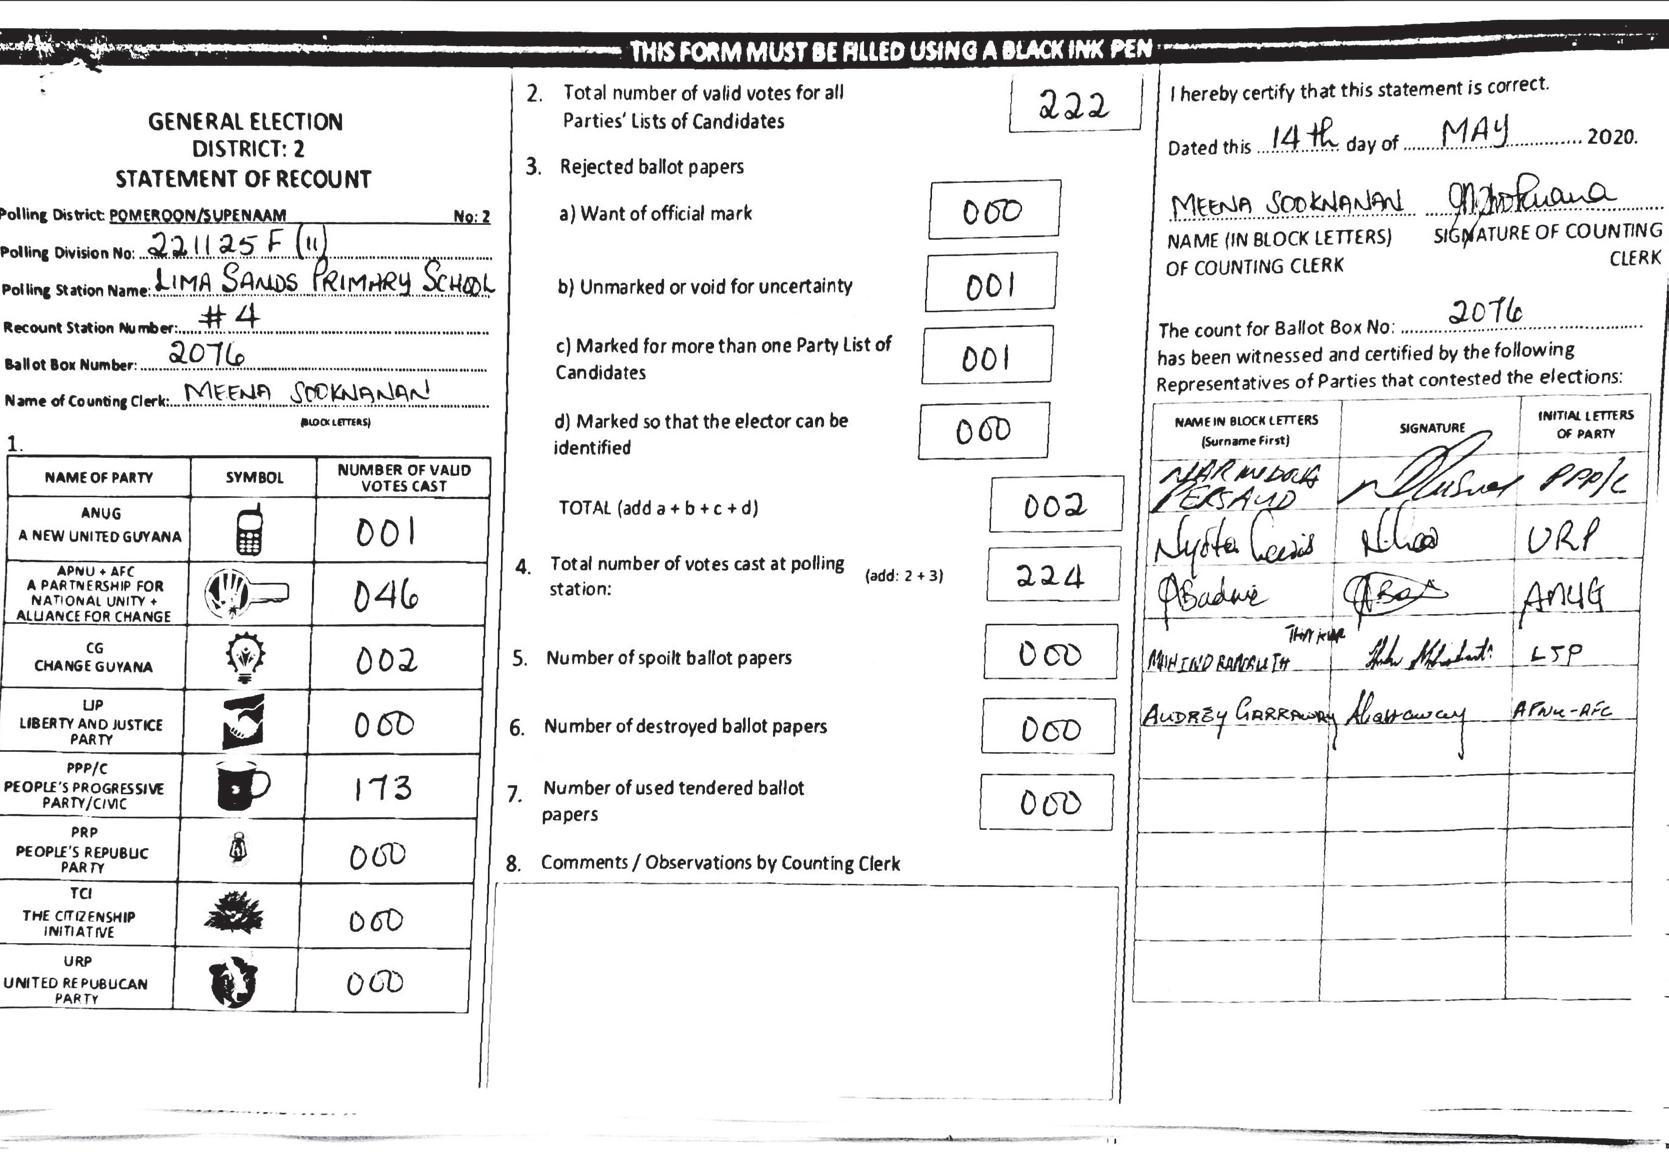 THIS FORM MUST BE FILLED USING A BLACK INK PEN
GENERAL ELECTION
DISTRICT: 2
STATEMENT OF RECOUNT
Polling District: POMEROON/SUPENAAM No: 2
Polling Division No: 221125 F (11)
Polling Station Name: LIMA SANDS PRIMARY SCHOOL
Recount Station Number: #4
Ballot Box Number: 2076
Name of Counting Clerk: MEENA SOOKNANAN
(BLOCK LETTERS)
1.
NAME OF PARTY SYMBOL NUMBER OF VALID
VOTES CAST
ANUG
A NEW UNITED GUYANA 001
APNU + AFC
A PARTNERSHIP FOR
NATIONAL UNITY +
ALLIANCE FOR CHANGE 046
CG
CHANGE GUYANA 002
LJP
LIBERTY AND JUSTICE
PARTY 000
PPP/C
PEOPLE'S PROGRESSIVE
PARTY/CIVIC 173
PRP
PEOPLE'S REPUBLIC
PARTY 000
TCI
THE CITIZENSHIP
INITIATIVE 000
URP
UNITED REPUBLICAN
PARTY 000
2. Total number of valid votes for all
Parties' Lists of Candidates 222
3. Rejected ballot papers
a) Want of official mark 000
b) Unmarked or void for uncertainty 001
c) Marked for more than one Party List of
Candidates 001
d) Marked so that the elector can be
identified 000
TOTAL (add a + b + c + d) 002
4. Total number of votes cast at polling
station: (add: 2 + 3) 224
5. Number of spoilt ballot papers 000
6. Number of destroyed ballot papers 000
7. Number of used tendered ballot
papers 000
8. Comments / Observations by Counting Clerk
I hereby certify that this statement is correct.
Dated this 14th day of MAY 2020.
MEENA SOOKNANAN
NAME (IN BLOCK LETTERS) SIGNATURE OF COUNTING
OF COUNTING CLERK CLERK
The count for Ballot Box No: 2076
has been witnessed and certified by the following
Representatives of Parties that contested the elections:
NAME IN BLOCK LETTERS SIGNATURE INITIAL LETTERS
(Surname First) OF PARTY
PERSAUD PPP/C
URP
ANUG
LJP
AUDREY GARRAWAY APNU-AFC